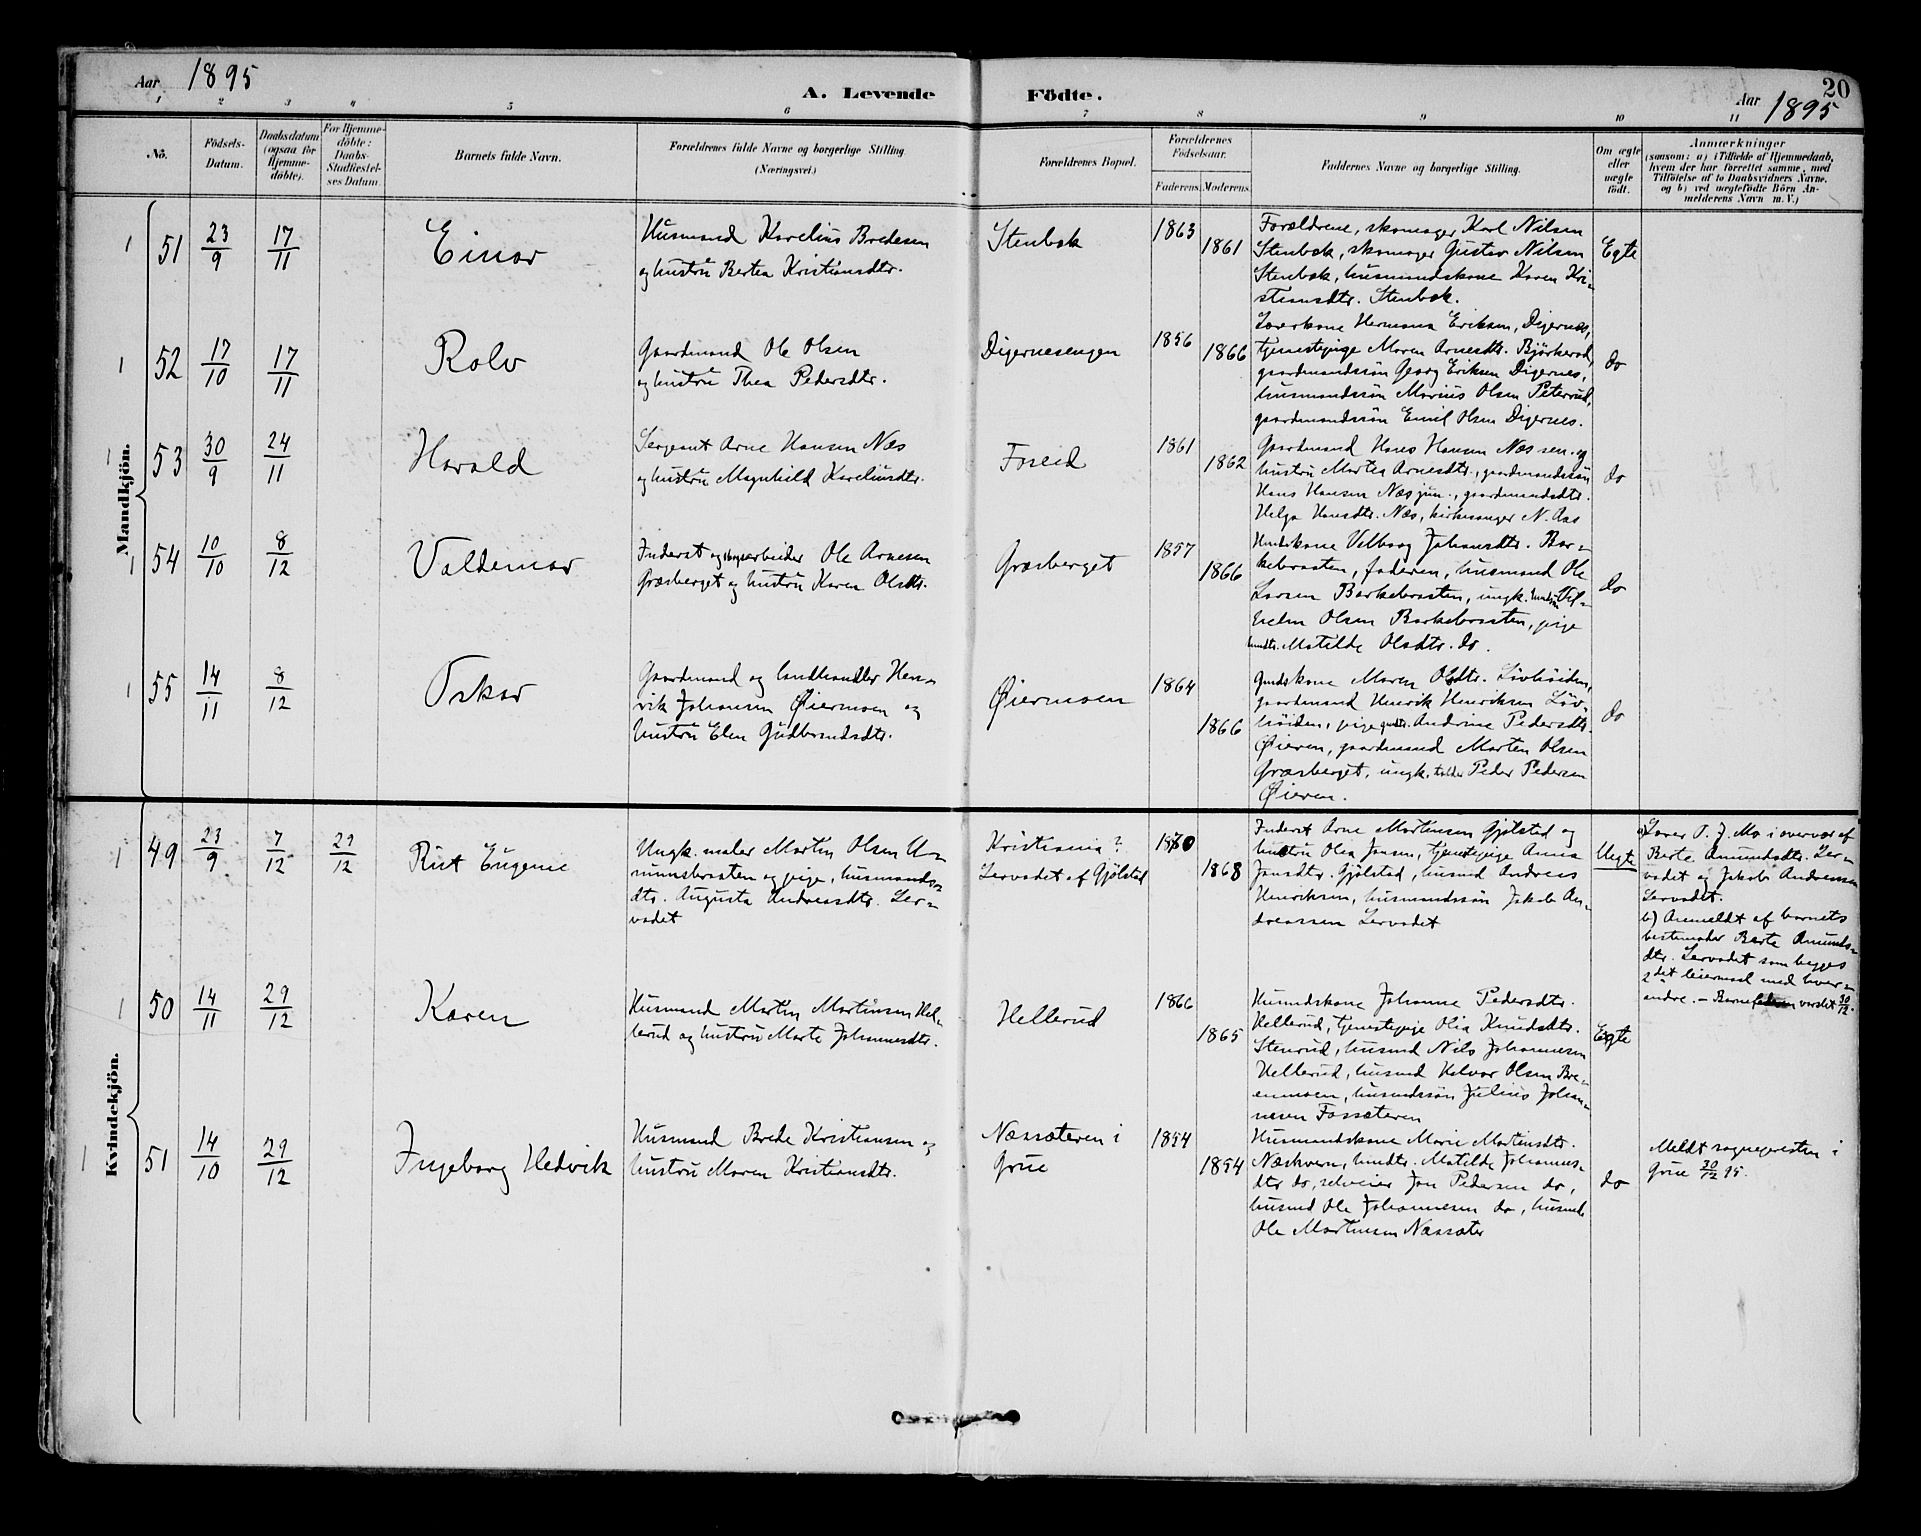 Aar 1895
A. Levende Födte.
20
Aar 1895
1 2 3 4 5 6 7 8 9 10 11
No.
Födsels-Datum.
Daabsdatum (ogsaa for Hjemme-döbte).
For Hjemme-döbte: Daabs-Stadfæstel-ses Datum.
Barnets fulde Navn.
Forældrenes fulde Navne og borgerlige Stilling.
(Næringsvei.)
Forældrenes Bopæl.
Forældrenes Födselsaar.
Faderens. Moderens.
Faddernes Navne og borgerlige Stilling.
Om ægte eller uægte födt.
Anmærkninger
(saasom: a) i Tilfælde af Hjemmedaab,
hvem der har forrettet samme, med
Tilföielse af to Daabsvidners Navne.
og b) ved uægtefödte Börn An-
melderens Navn m. V.)
Mandkjön.
1 51 23/9 17/11 Einar
Husmand Karelius Bredesen
og hustru Bertea Kristiansdtr.
Stenbæk 1863 1861
Forældrene, skomager Karl Nilsen
Stenbæk, skomager Gustav Nilsen
Stenbæk, husmandskone Karen Kri-
stiansdtr. Stenbæk.
Egte
1 52 17/10 17/11 Rolv
Gaardmand Ole Olsen
og hustru Thea Pedersdtr.
Digernesengen 1856 1866
Lærerkone Hermana Eriksen, Digernes,
tjenestepige Maren Arnesdtr. Björkerud,
gaardmandssön Georg Eriksen Digernes,
husmandssön Marius Olsen Peterrud,
gaardmandssön Emil Olsen Digernes.
do
1 53 30/9 24/11 Harald
Sergeant Arne Hansen Næs
og hustru Magnhild Kareliusdtr.
Foseid 1861 1862
Gaardmand Hans Hansen Næs sen. og
hustru Martea Arnesdtr., gaardmandssön
Hans Hansen Næs jun., gaardmandsdtr.
Helga Hansdtr. Næs, kirkesanger N. Aas
do
1 54 10/10 8/12 Valdemar
Inderst og arbeider Ole Arnesen
Græsberget og hustru Karen Olsdtr.
Græsberget 1857 1866
Husmdskone Valborg Johansdtr. Bar-
kebraaten, faderen, husmand Ole
Larsen Barkebraaten, ungk. Vil-
helm Olsen Barkebraaten, pige
husmdtr. Matilde Olsdtr. do.
do
1 55 14/11 8/12 Oskar
Gaardmand og landhandler Hen-
rik Johansen Øiermoen og
hustru Elen Gudbrandsdtr.
Øiermoen 1864 1866
Gmdskone Maren Olsdtr. Lövhöiden,
gaardmand Henrik Henriksen Löv-
höiden, pige gmdtr. Andrine Pedersdtr.
Øieren, gaardmand Morten Olsen
Græsberget, ungk. Peder Pedersen
Øieren.
do
Kvindekjön.
1 49 23/9 7/12 29/12 Rut Eugenie
Ungk. maler Martin Olsen A-
munsbraaten og pige, husmands-
dtr. Augusta Andreasdtr. Ler-
vadet
Kristiania?
Lervadet af Gjölstad
1870 1868
Inderst Arne Mortensen Gjölstad og
hustru Olea Jansen, tjenestepige Anna
Jansdtr. Gjölstad, husmd Andreas
Henriksen, husmandssön Jakob An-
dreassen Lervadet
Uegte
a) Lærer P. J. Mo i overvær af
Berte Amundsdtr. Ler-
vadet og Jakob Andreassen
Lervadet.
b) Anmeldt af barnets
bestemoder Berte Amunds-
dtr. Lervadet som begges
2det leiermaal med hver-
andre. — Barnefaderen varslet 30/12.
1 50 14/11 29/12 Karen
Husmand Martin Martinsen Hel-
lerud og hustru Marte Johannesdtr.
Hellerud 1866 1865
Husmdskone Johanne Pedersdtr.
Hellerud, tjenestepige Olia Knudsdtr.
Stenrud, husmd Nils Johannesen
Hellerud, husmd Halvor Olsen Bre-
enmoen, husmdssön Julius Johan-
nesen Fossæteren
Egte
1 51 14/10 29/12 Ingeborg Hedvik
Husmand Brede Kristiansen og
hustru Maren Kristiansdtr.
Næssæteren i
Grue
1854 1854
Husmandskone Marie Martinsdtr.
Næskvern, husmdtr. Matilde Johannes-
dtr do, selveier Jon Pedersen do,
husmd Ole Johannesen do, husmd
Ole Martinsen Næssæter
do
Meldt sognepresten i
Grue 30/12 95.